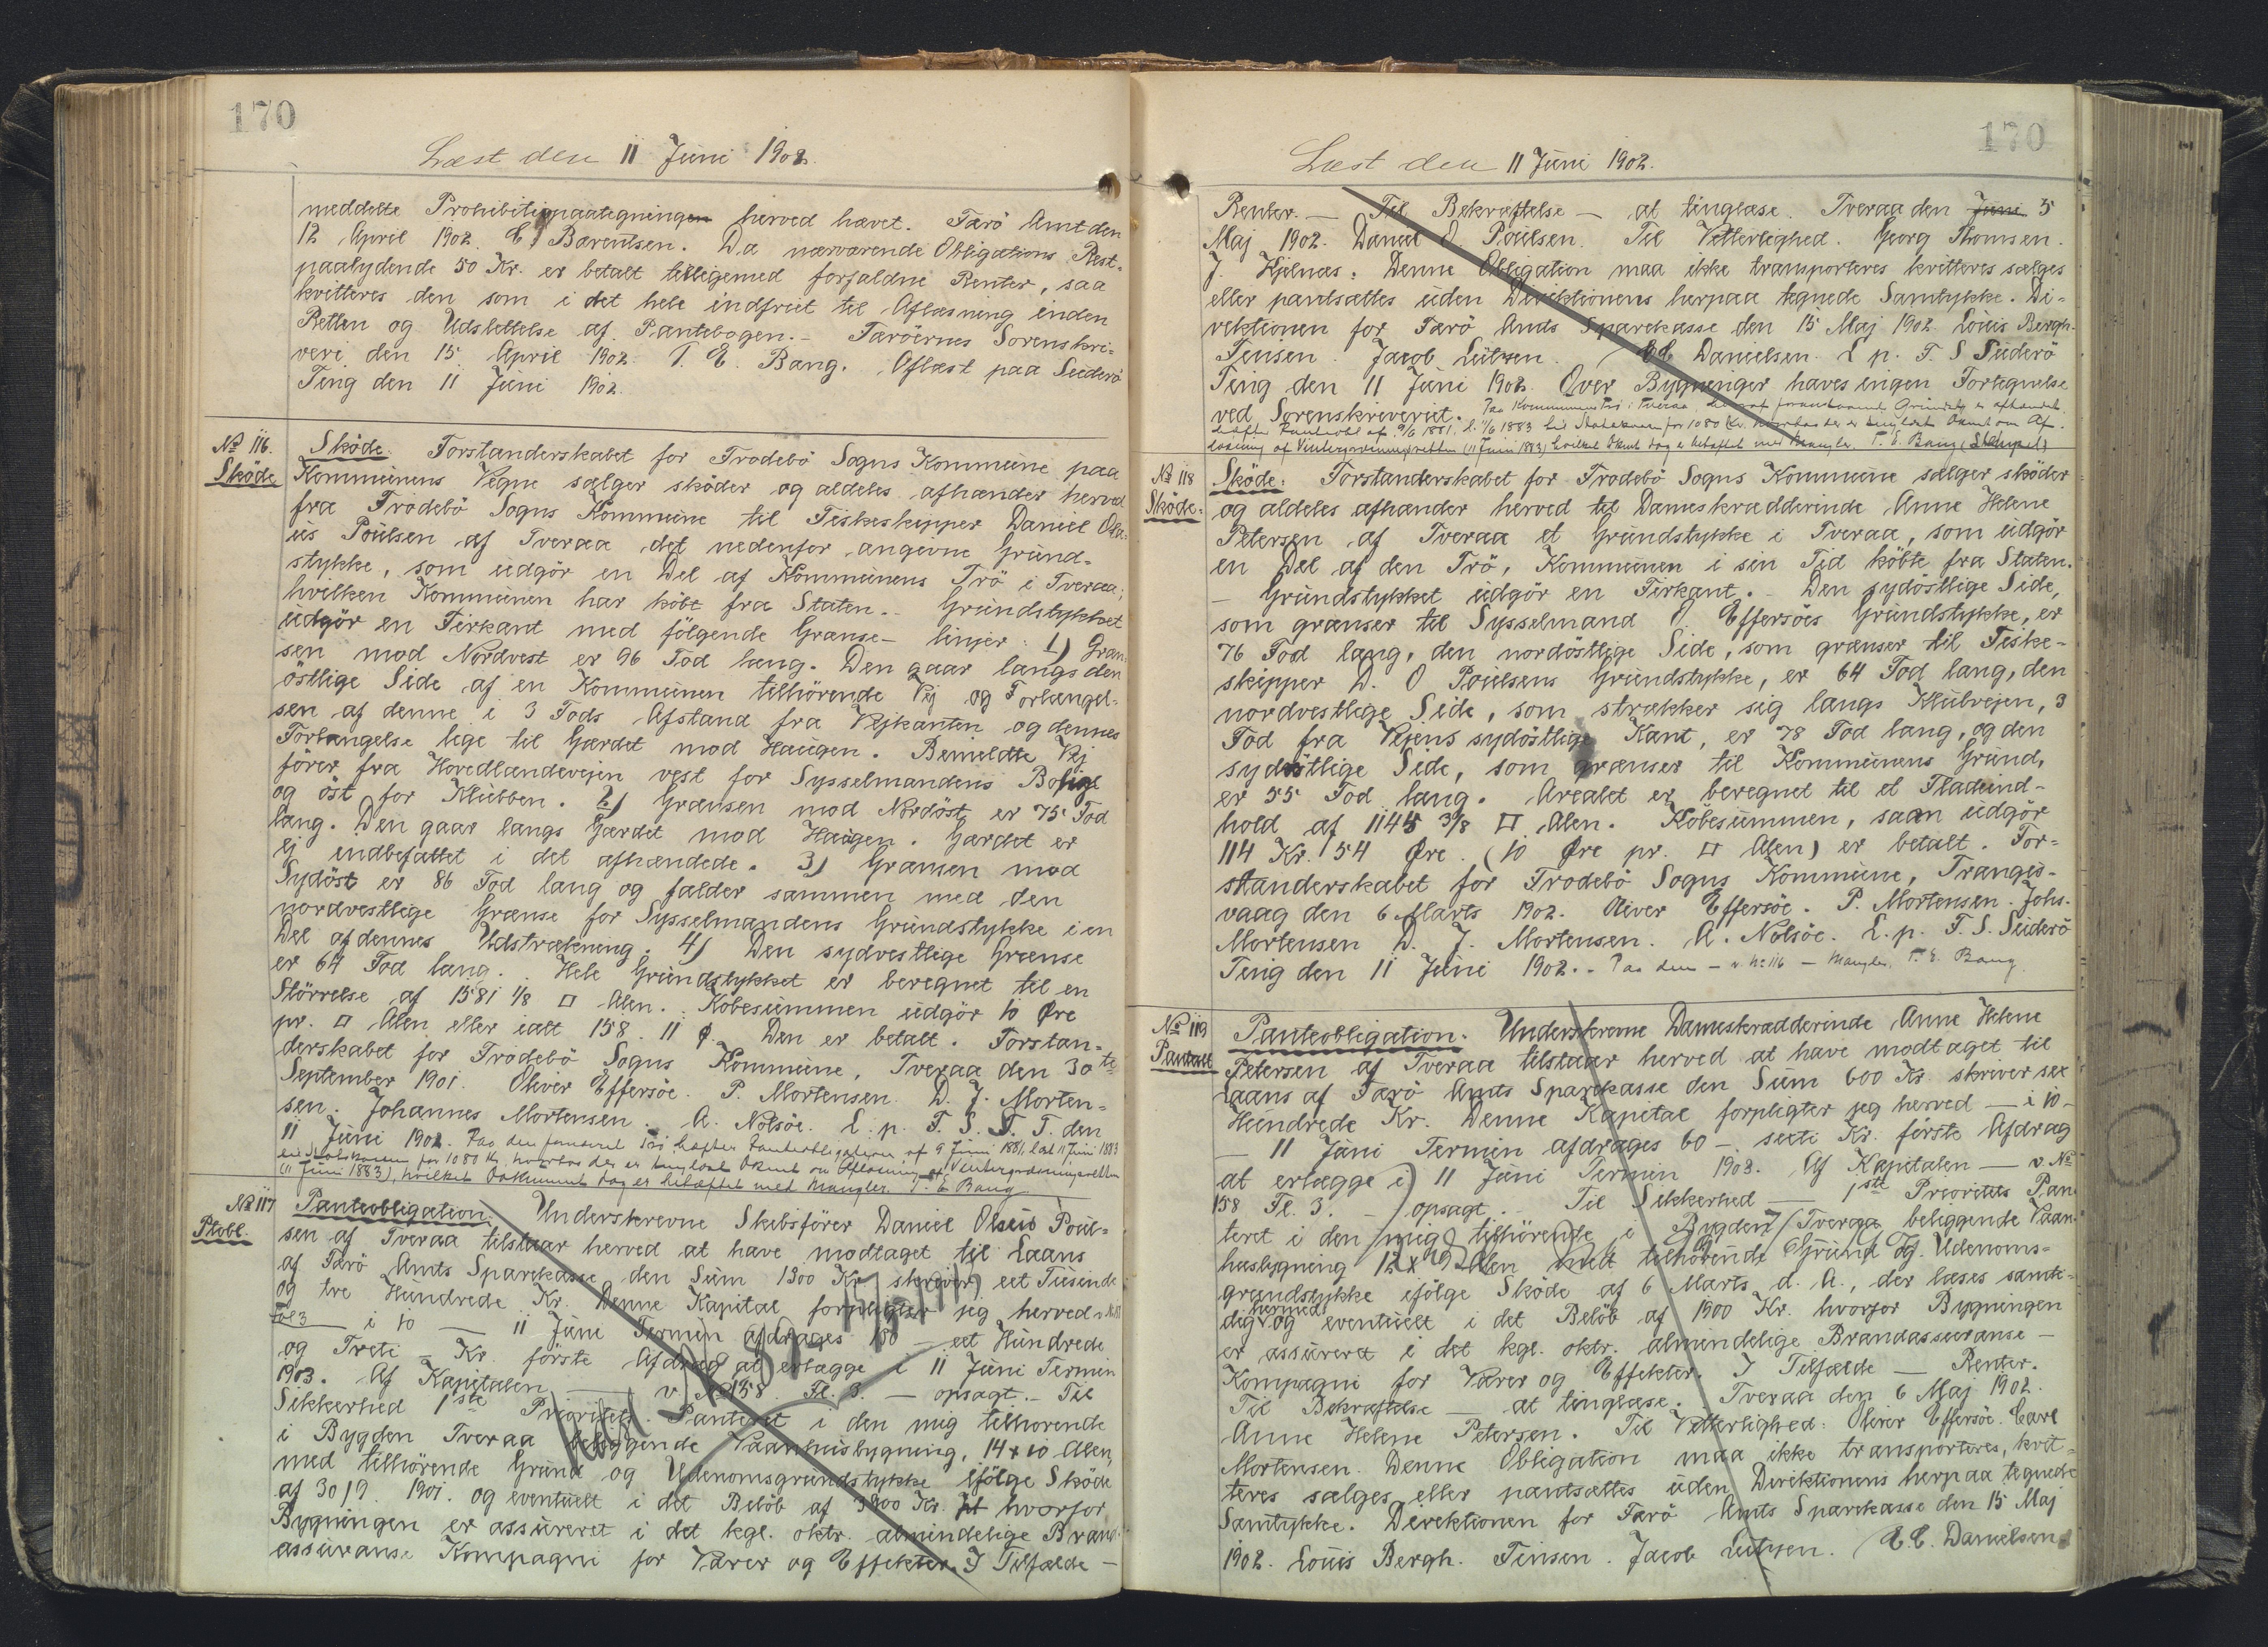 170
Læst den 11 Juni 1902.
meddelte Prohibitipaategningen herved hævet. Færö Amt den
12 April 1902. C. Bærentsen. Da nærværende Obligations Rest-
paalydende 50 Kr. er betalt tilligemed forfaldne Renter, saa
kvitteres den som i det hele indfriet til Aflæsning inden
Retten og Udslettelse af Pantebogen. - Færöernes Sorenskri-
veri den 15 April 1902. T. E. Bang. Aflæst paa Suderö
Ting den 11 Juni 1902.
No 116.
Sköde
Sköde. Forstanderskabet for Frodebö Sogns Kommune paa
Kommunens Vegne sælger sköder og aldeles afhænder herved
fra Frodebö Sogns Kommune til Fiskeskipper Daniel Ola-
us Poulsen af Tveraa det nedenfor angivne Grund-
stykke, som udgör en Del af Kommunens Trö i Tveraa,
hvilken Kommunen har köbt fra Staten. - Grundstykket
udgör en Firkant med fölgende Grænse- linjer: 1) Græn-
sen mod Nordvest er 96 Fod lang. Den gaar langs den
östlige Side af en Kommunen tilhörende Vej og Forlængel-
sen af denne i 3 Fods Afstand fra Vejkanten og dennes
Forlængelse lige til Gærdet mod Haugen. Bemeldte Vej
förer fra Hovedlandevejen vest for Sysselmandens Bolig
og öst for Klubben. 2) Grænsen mod Nordöst er 75 Fod
lang. Den gaar langs Gærdet mod Haugen. Gærdet er
ej indbefattet i det afhændede. 3) Grænsen mod
Sydöst er 86 Fod lang og falder sammen med den
nordvestlige Grænse for Sysselmandens Grundstykke i en
Del af dennes Udstrækning. 4) Den sydvestlige Grænse
er 64 Fod lang. Hele Grundstykket er beregnet til en
Störrelse af 1581 1/8 □ Alen. Köbesummen udgör 10 Øre
pr. □ Alen eller ialt 158. 11 ø. Den er betalt. Forstan-
derskabet for Frodebö Sogns Kommune, Tveraa den 30te
September 1901. Oliver Effersöe. P. Mortensen. D. J. Morten-
sen. Johannes Mortensen. A. Nolsöe. L. p. F. S. S. T. den
11 Juni 1902. Paa den hæfter Panteobligationen af 9 Juni 1881, læst 11 Juni 1883
til Statskassen for 1080 Kr, hvorhos der er tinglæst Dokumt om Aflösning af Vintergræsningsretten
(11 Juni 1883), hvilket Dokument dog er behæftet med Mangler. T. E. Bang
No 117
Ptobl.
Panteobligation. Underskrevne Skibsförer Daniel Olaus Poul-
sen af Tveraa tilstaar herved at have modtaget til Laans
af Færö Amts Sparekasse den Sum 1300 Kr. skriver eet Tusinde
og tre Hundrede Kr. Denne Kapital forpligter jeg herved
Fol 3 — i 10 — 11 Juni Termin afdrages 130 — eet Hundrede
og Treti — Kr. förste Afdrag at erlægge i 11 Juni Termin
1903. Af Kapitalen — v. No 158 Fl. 3. — opsagt. - Til
Sikkerhed 1ste Prioritets Panteret i den mig tilhörende
i Bygden Tveraa beliggende Vaanhusbygning, 14 x 10 Alen,
med tilhörende Grund og Udenomsgrundstykke ifölge Sköde
af 30/9. 1901. og eventuelt i det Belöb af 3900 Kr. hvorfor
Bygningen er assureret i det kgl. oktr. almindelige Brand-
assuranse Kompagni for Varer og Effekter. I Tilfælde —
170
Læst den 11 Juni 1902.
Renter. — Til Bekræftelse — at tinglæse. Tveraa den Juni 5
Maj 1902. Daniel O. Poulsen. Til Vitterlighed. Georg Thomsen.
J. Kjølnæs. Denne Obligation maa ikke transporteres kvitteres sælges
eller pantsættes uden Direktionens herpaa tegnede Samtykke. Di-
rektionen for Færö Amts Sparekasse den 15 Maj 1902. Louis Bergh.
Finsen. Jacob Lützen. E. C. Danielsen. L p. F. S Suderö
Ting den 11 Juni 1902. Over Bygninger haves ingen Fortegnelse
ved Sorenskriveriet. Paa Kommunens Trö i Tveraa, foranstaaende Grundst. er afhændet,
hæfter Panteobl. af 9/6 1881, l. 11/6 1883 til Statskassen for 1080 Kr. hvorhos der er tinglæst Dokmt om Af-
lösning af Vintergræsningsretten (11 Juni 1883) hvilket Dkmt dog er behæftet med Mangler. T. E. Bang (Stempel)
No 118
Sköde.
Sköde: Forstanderskabet for Frodebö Sogns Kommune sælger sköder
og aldeles afhænder herved til Dameskrædderinde Anne Helene
Petersen af Tveraa et Grundstykke i Tveraa, som udgör
en Del af den Trö, Kommunen i sin Tid köbte fra Staten.
— Grundstykket udgör en Firkant. - Den sydöstlige Side,
som grænser til Sysselmand O. Effersöes Grundstykke, er
76 Fod lang, den nordöstlige Side, som grænser til Fiske-
skipper D. O Poulsens Grundstykke, er 64 Fod lang, den
nordvestlige Side, som strækker sig langs Klubvejen, 3
Fod fra Vejens sydöstlige Kant, er 78 Fod lang, og den
sydvestlige Side, som grænser til Kommunens Grund,
er 55 Fod lang. Arealet er beregnet til et Fladeind-
hold af 1145 3/8 □ Alen. Köbesummen, saam udgör
114 Kr. 54 Øre. (10 Øre pr. □ Alen) er betalt. For-
standerskabet for Frodebö Sogns Kommune, Trangis-
vaag den 6 Marts 1902. Oliver Effersöe. P. Mortensen. Johs.
Mortensen D. J. Mortensen. A. Nolsöe. L. p. F. S. Suderö
Ting den 11 Juni 1902. - Paa den — v. No 116 — Mangler. T. E. Bang
No 119
Panteobl
Panteobligation. Underskrevne Dameskrædderinde Anne Helene
Petersen af Tveraa tilstaar herved at have modtaget til
Laans af Færö Amts Sparekasse den Sum 600 Kr. skriver sex
Hundrede Kr. Denne Kapital forpligter jeg herved — i 10 —
— 11 Juni Termin afdrages 60 — sexti Kr. förste Afdrag
at erlægge i 11 Juni Termin 1903. Af Kapitalen — v. No
158 Fl. 3. — opsagt. - Til Sikkerhed — 1ste Prioritets Pan-
teret i den mig tilhörende i Bygden Tveraa beliggende Vaan-
husbygning 12 x 9 Alen med tilhörende Grund og Udenoms-
grundstykke ifölge Sköde af 6 Marts d. A., der læses samti-
dig hermed og eventuelt i det Belöb af 1900 Kr. hvorfor Bygningen
er assureret i det kgl. oktr. almindelige Brandassuranse —
Kompagni for Varer og Effekter. I Tilfælde — Renter.
Til Bekræftelse — at tinglæse. Tveraa den 6 Maj 1902.
Anne Helene Petersen. Til Vitterlighed: Oliver Effersöe. Carl
Mortensen. Denne Obligation maa ikke transporteres, kvit-
teres sælges eller pantsættes uden Direktionens herpaa tegnede
Samtykke. Direktionen for Færö Amts Sparekasse den 15 Maj
1902. Louis Bergh. Finsen. Jacob Lützen. E. C. Danielsen